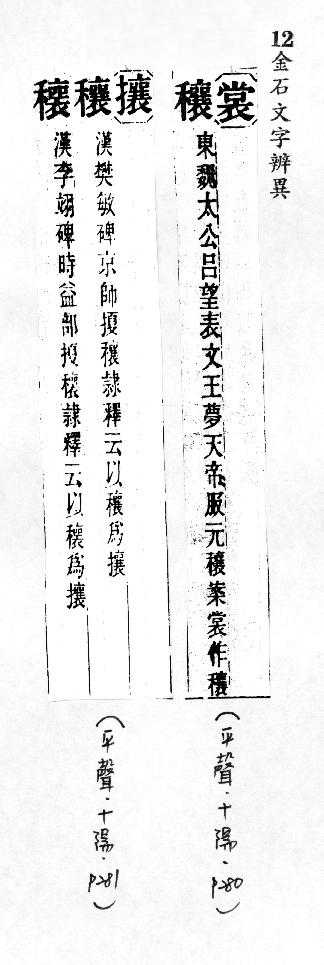 12
金石文字辨異
裳
穰
東魏太公呂望表文王夢天帝服元穰案裳作穰
(平聲.十陽.p280)
攘
穰
漢樊敏碑京師擾穰隸釋云以穰爲攘
穰
漢李翊碑時益部擾穰隸釋云以穰爲攘
(平聲.十陽.p281)